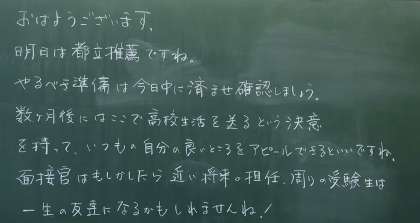 おはようございます。
明日は都立推薦ですね。
やるべき準備は今日中に済ませ確認しましょう。
数ヶ月後にはここで高校生活を送るという決意
を持って、いつもの自分の良いところをアピールできるといいですね。
面接官はもしかしたら近い将来の担任、周りの受験生は
一生の友達になるかもしれませんね!